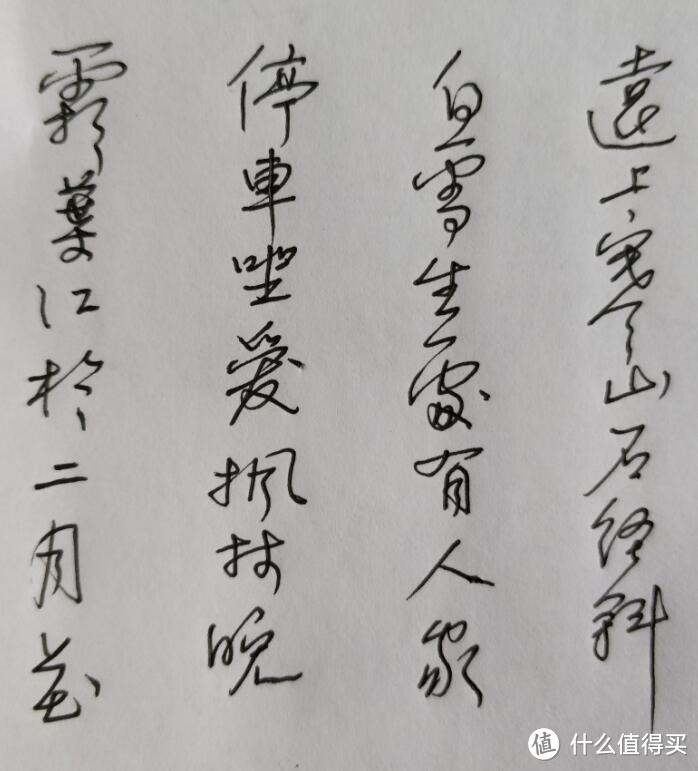 遠上寒山石径斜
白雲生處有人家
停車坐愛楓林晚
霜葉红於二月花
值 什么值得买